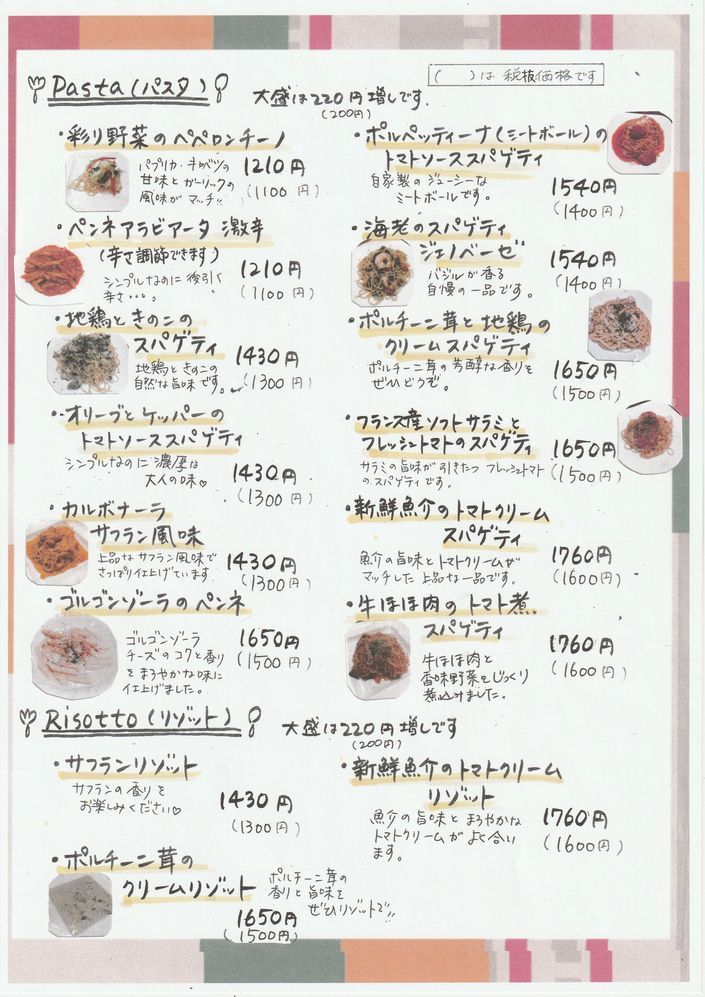 (　　)は 税抜価格です
Pasta(パスタ)
大盛は220円増しです.
(200円)
・彩り野菜のペペロンチーノ
パプリカ・キャベツの
甘味とガーリックの
風味がマッチ!!
1210円
(1100円)
・ペンネアラビアータ 激辛
(辛さ調節できます)
シンプルなのに後引く
辛さ・・・。
1210円
(1100円)
・地鶏ときのこの
スパゲティ
地鶏ときのこの
自然な旨味です。
1430円
(1300円)
・オリーブとケッパーの
トマトソーススパゲティ
シンプルなのに濃厚は
大人の味♡
1430円
(1300円)
・カルボナーラ
サフラン風味
上品なサフラン風味で
さっぱり仕上げています
1430円
(1300円)
・ゴルゴンゾーラのペンネ
ゴルゴンゾーラ
チーズのコクと香り
をまろやかな味に
仕上げました。
1650円
(1500円)
・ポルペッティーナ(ミートボール)の
トマトソーススパゲティ
自家製のジューシーな
ミートボールです。
1540円
(1400円)
・海老のスパゲティ
ジェノベーゼ
バジルが香る
自慢の一品です。
1540円
(1400円)
・ポルチーニ茸と地鶏の
クリームスパゲティ
ポルチーニ茸の芳醇な香りを
ぜひどうぞ。
1650円
(1500円)
・フランス産ソフトサラミと
フレッシュトマトのスパゲティ
サラミの旨味が引きたつ フレッシュトマト
のスパゲティです。
1650円
(1500円)
・新鮮魚介のトマトクリーム
スパゲティ
魚介の旨味とトマトクリームが
マッチした上品な一品です。
1760円
(1600円)
・牛ほほ肉のトマト煮
スパゲティ
牛ほほ肉と
香味野菜をじっくり
煮込みました.
1760円
(1600円)
Risotto(リゾット)
大盛は220円増しです
(200円)
・サフランリゾット
サフランの香りを
お楽しみください♡
1430円
(1300円)
・ポルチーニ茸の
クリームリゾット
ポルチーニ茸の
香りと旨味を
ぜひリゾットで!!
1650円
(1500円)
・新鮮魚介のトマトクリーム
リゾット
魚介の旨味とまろやかな
トマトクリームがよく合い
ます。
1760円
(1600円)